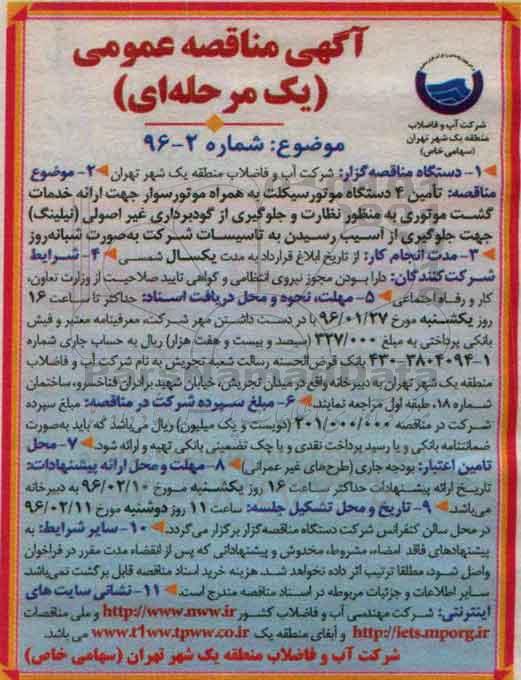 آگهی مناقصه عمومی
(یک مرحله‌ای)
موضوع: شماره ۲-۹۶
شرکت آب و فاضلاب
منطقه یک شهر تهران
(سهامی خاص)
۱- دستگاه مناقصه‌گزار: شرکت آب و فاضلاب منطقه یک شهر تهران ۲- موضوع
مناقصه: تأمین ۴ دستگاه موتورسیکلت به همراه موتورسوار جهت ارائه خدمات
گشت موتوری به منظور نظارت و جلوگیری از گودبرداری غیر اصولی (نیلینگ)
جهت جلوگیری از آسیب رسیدن به تاسیسات شرکت به‌صورت شبانه‌روز
۳- مدت انجام کار: از تاریخ ابلاغ قرارداد به مدت یکسال شمسی ۴- شرایط
شرکت‌کنندگان: دارا بودن مجوز نیروی انتظامی و گواهی تایید صلاحیت از وزارت تعاون،
کار و رفاه اجتماعی ۵- مهلت، نحوه و محل دریافت اسناد: حداکثر تا ساعت ۱۶
روز یکشنبه مورخ ۹۶/۰۱/۲۷ با در دست داشتن مهر شرکت، معرفینامه معتبر و فیش
بانکی پرداختی به مبلغ ۳۲۷/۰۰۰ (سیصد و بیست و هفت هزار) ریال به حساب جاری شماره
۴۳۰-۳۸۰۴۰۹۴-۱ بانک قرض‌الحسنه رسالت شعبه تجریش به نام شرکت آب و فاضلاب
منطقه یک شهر تهران به دبیرخانه واقع در میدان تجریش، خیابان شهید برادران فناخسرو، ساختمان
شماره ۱۸، طبقه اول مراجعه نمایند. ۶- مبلغ سپرده شرکت در مناقصه: مبلغ سپرده
شرکت در مناقصه ۲۰۱/۰۰۰/۰۰۰ (دویست و یک میلیون) ریال می‌باشد که باید به‌صورت
ضمانتنامه بانکی و یا رسید پرداخت نقدی و یا چک تضمینی بانکی تهیه و ارائه شود. ۷- محل
تامین اعتبار: بودجه جاری (طرح‌های غیر عمرانی) ۸- مهلت و محل ارائه پیشنهادات:
تاریخ ارائه پیشنهادات حداکثر ساعت ۱۶ روز یکشنبه مورخ ۹۶/۰۲/۱۰ به دبیرخانه
می‌باشد. ۹- تاریخ و محل تشکیل جلسه: ساعت ۱۱ روز دوشنبه مورخ ۹۶/۰۲/۱۱
در محل سالن کنفرانس شرکت دستگاه مناقصه‌گزار برگزار می‌گردد. ۱۰- سایر شرایط: به
پیشنهادهای فاقد امضاء، مشروط، مخدوش و پیشنهاداتی که پس از انقضاء مدت مقرر در فراخوان
واصل شود، مطلقا ترتیب اثر داده نخواهد شد. هزینه خرید اسناد مناقصه قابل برگشت نمی‌باشد
سایر اطلاعات و جزئیات مربوطه در اسناد مناقصه مندرج است. ۱۱- نشانی سایت های
اینترنتی: شرکت مهندسی آب و فاضلاب کشور http://www.nww.ir و ملی مناقصات
http://iets.mporg.ir و آبفای منطقه یک www.t1ww.tpww.co.ir می باشد.
شرکت آب و فاضلاب منطقه یک شهر تهران (سهامی خاص)